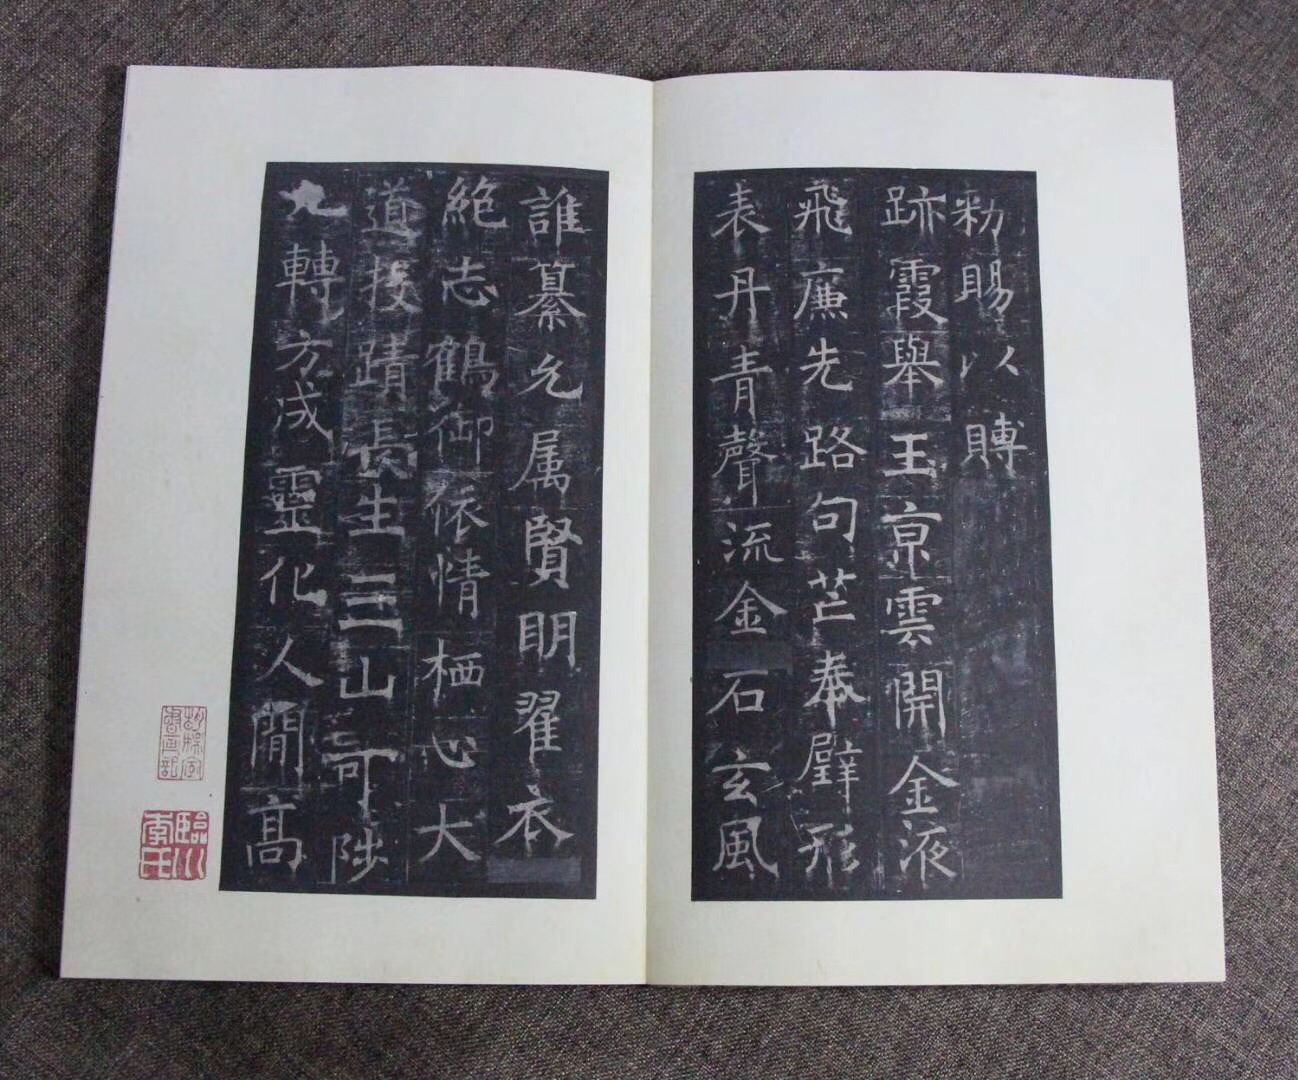 勑賜以賻
跡霞舉玉京雲開金液
飛廉先路句芒奉璧形
表丹青聲流金石玄風
誰纂允属賢明翟衣
絶志鶴御依情栖心大
道投蹟長生三山可陟
九轉方成靈化人間髙
臨川李氏